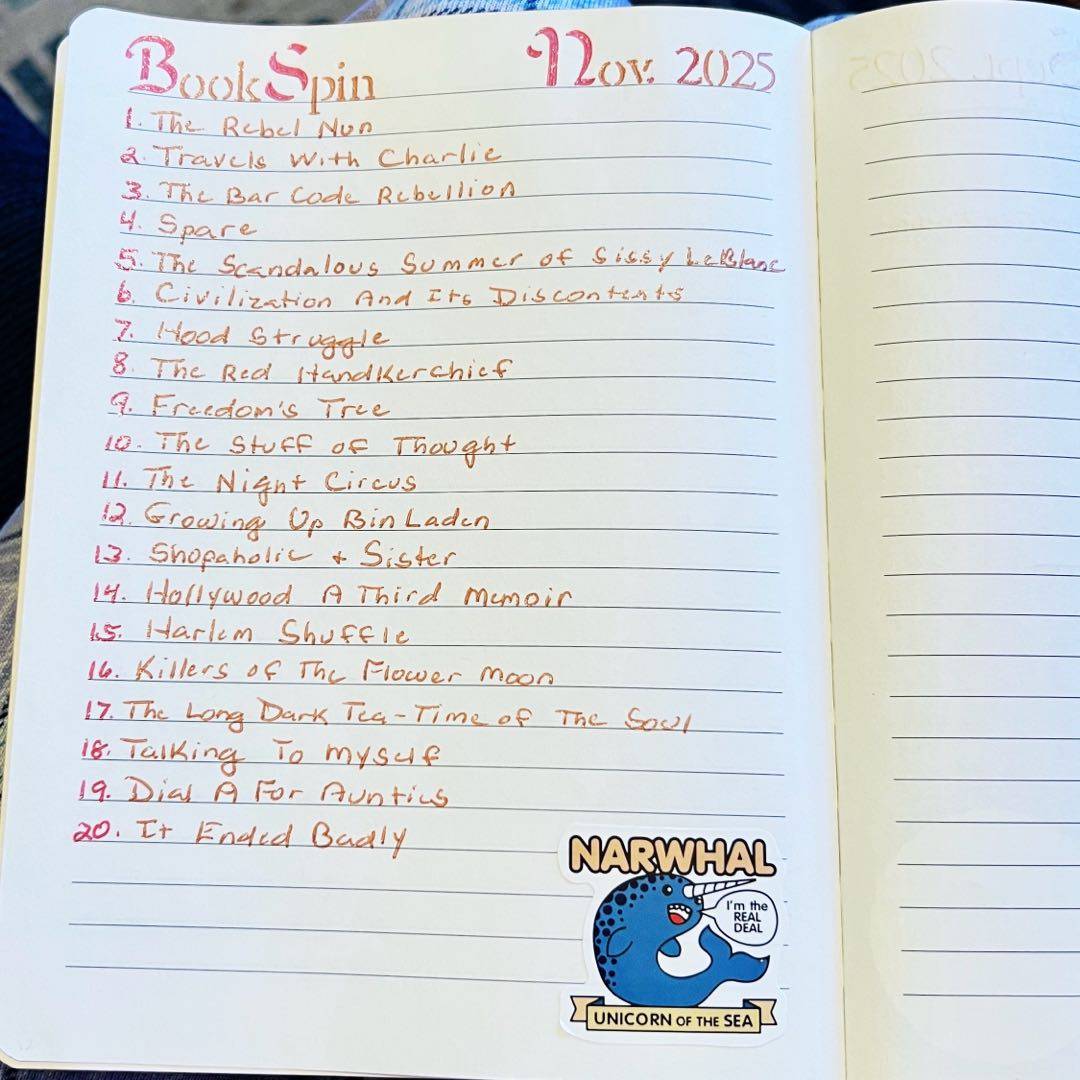 BookSpin Nov. 2025
1. The Rebel Nun
2. Travels With Charlie
3. The Bar Code Rebellion
4. Spare
5. The Scandalous Summer of Sissy LeBlanc
6. Civilization And Its Discontents
7. Hood Struggle
8. The Red Handkerchief
9. Freedom's Tree
10. The Stuff of Thought
11. The Night Circus
12. Growing Up Bin Laden
13. Shopaholic + Sister
14. Hollywood A Third Memoir
15. Harlem Shuffle
16. Killers of The Flower Moon
17. The Long Dark Tea-Time of The Soul
18. Talking To Myself
19. Dial A For Aunties
20. It Ended Badly
NARWHAL
I'm the
REAL
DEAL
UNICORN OF THE SEA